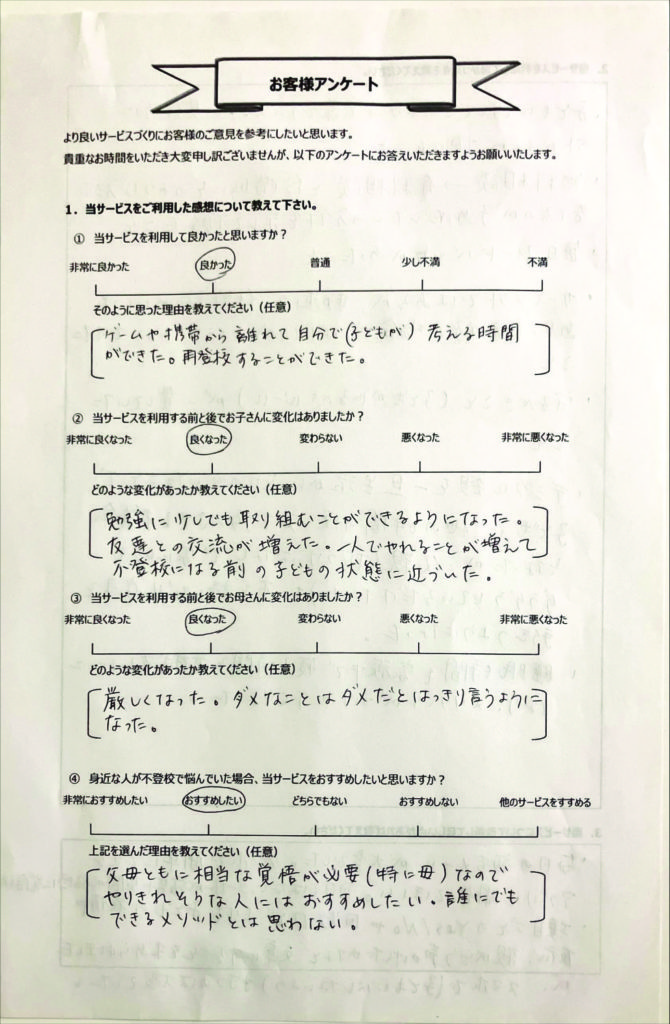 お客様アンケート
より良いサービスづくりにお客様のご意見を参考にしたいと思います。
貴重なお時間をいただき大変申し訳ございませんが、以下のアンケートにお答えいただきますようお願いいたします。
1．当サービスをご利用した感想について教えて下さい。
① 当サービスを利用して良かったと思いますか？
非常に良かった 良かった 普通 少し不満 不満
そのように思った理由を教えてください（任意）
ゲームや携帯から離れて自分で(子どもが) 考える時間
ができた。再登校することができた。
② 当サービスを利用する前と後でお子さんに変化はありましたか？
非常に良くなった 良くなった 変わらない 悪くなった 非常に悪くなった
どのような変化があったか教えてください（任意）
勉強に少しでも取り組むことができるようになった。
友達との交流が増えた。一人でやれることが増えて
不登校になる前の子どもの状態に近づいた。
③ 当サービスを利用する前と後でお母さんに変化はありましたか？
非常に良くなった 良くなった 変わらない 悪くなった 非常に悪くなった
どのような変化があったか教えてください（任意）
厳しくなった。ダメなことはダメだとはっきり言うように
なった。
④ 身近な人が不登校で悩んでいた場合、当サービスをおすすめしたいと思いますか？
非常におすすめしたい おすすめしたい どちらでもない おすすめしない 他のサービスをすすめる
上記を選んだ理由を教えてください（任意）
父母ともに相当な覚悟が必要（特に母）なので
やりきれそうな人にはおすすめしたい。誰にでも
できるメソッドとは思わない。